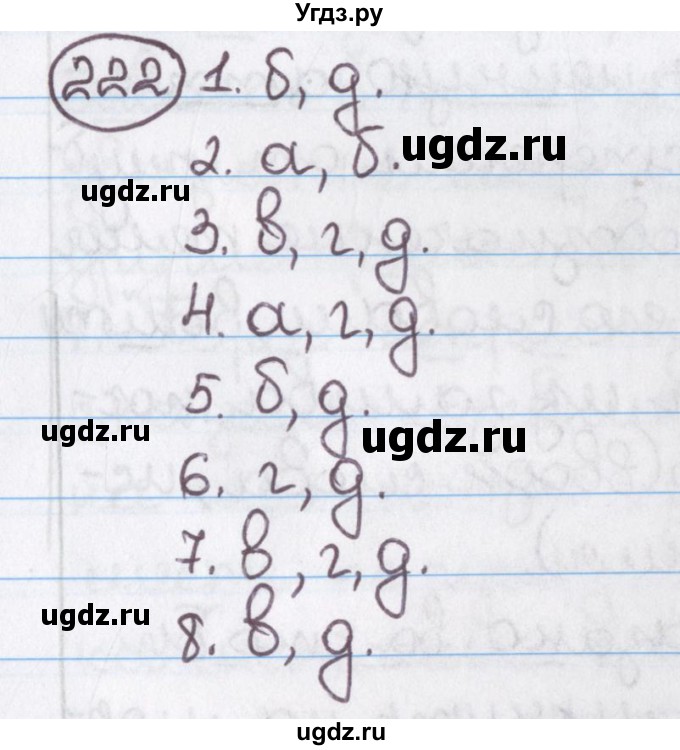 Угдз.ру
222 1. б, д.
2. а, б.
ugdz.ru
ugdz.ru
3. в, г, д.
4. а, г, д.
5. б, д.
ugdz.ru
ugdz.ru
6. г, д.
7. в, г, д.
ugdz.ru
8. в, д.
ugdz.ru